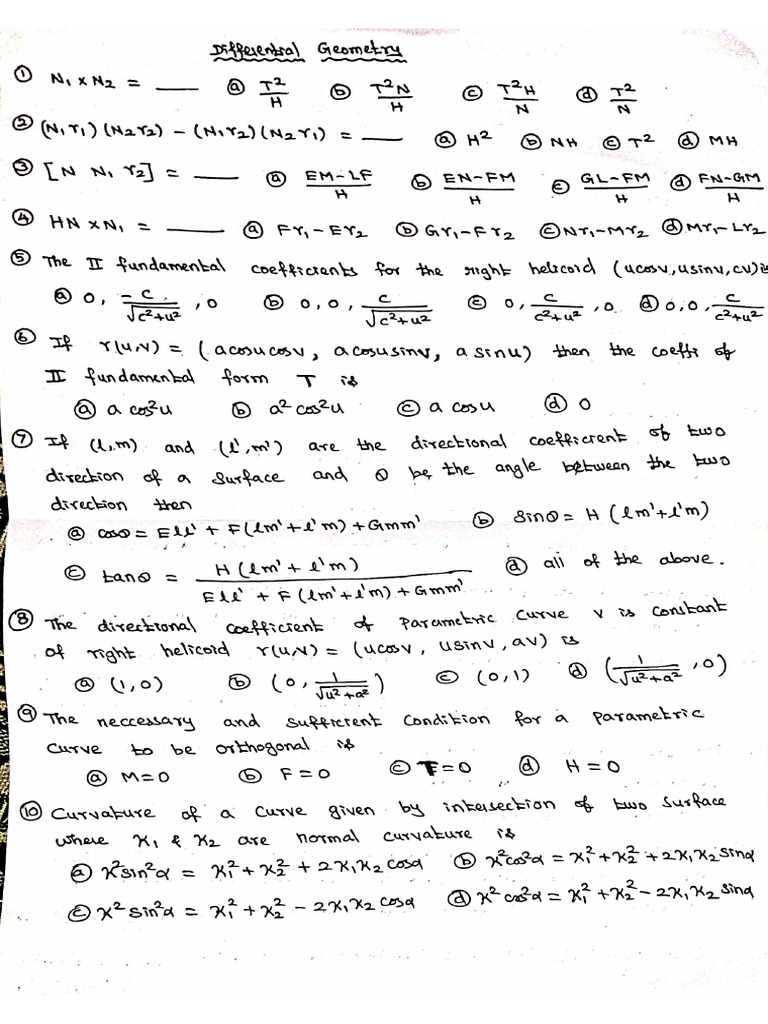 Differential Geometry
① N₁ × N₂ = ____ ⓐ T²/H ⓑ T²N/H ⓒ T²H/N ⓓ T²/N
② (N₁r₁)(N₂r₂) – (N₁r₂)(N₂r₁) = ____ ⓐ H² ⓑ NH ⓒ T² ⓓ MH
③ [N N₁ r₂] = ____ ⓐ EM–LF/H ⓑ EN–FM/H ⓒ GL–FM/H ⓓ FN–GM/H
④ HN × N₁ = ____ ⓐ Fr₁–Er₂ ⓑ Gr₁–Fr₂ ⓒ Nr₁–Mr₂ ⓓ Mr₁–Lr₂
⑤ The II fundamental coefficients for the right helicoid (ucosv, usinv, cv) is
ⓐ 0, –c/√(c²+u²), 0 ⓑ 0, 0, c/√(c²+u²) ⓒ 0, c/(c²+u²), 0 ⓓ 0, 0, c/(c²+u²)
⑥ If r(u,v) = (acosucosv, acosusinv, asinu) then the coeffi of
II fundamental form T is
ⓐ a cos²u ⓑ a²cos²u ⓒ a cosu ⓓ 0
⑦ If (l,m) and (l',m') are the directional coefficient of two
direction of a surface and θ be the angle between the two
direction then
ⓐ cosθ = Ell' + F(lm'+l'm) + Gmm' ⓑ sinθ = H(lm'+l'm)
ⓒ tanθ = H(lm'+l'm)/Ell' + F(lm'+l'm) + Gmm' ⓓ all of the above.
⑧ The directional coefficient of parametric curve v is constant
of right helicoid r(u,v) = (ucosv, usinv, av) is
ⓐ (1,0) ⓑ (0, 1/√(u²+a²)) ⓒ (0,1) ⓓ (1/√(u²+a²), 0)
⑨ The neccessary and sufficient condition for a parametric
curve to be orthogonal is
ⓐ M=0 ⓑ F=0 ⓒ T=0 ⓓ H=0
⑩ Curvature of a curve given by intersection of two surface
where ϰ₁ & ϰ₂ are normal curvature is
ⓐ ϰ²sin²α = ϰ₁²+ϰ₂²+2ϰ₁ϰ₂cosα ⓑ ϰ²cos²α = ϰ₁²+ϰ₂²+2ϰ₁ϰ₂sinα
ⓒ ϰ²sin²α = ϰ₁²+ϰ₂²–2ϰ₁ϰ₂cosα ⓓ ϰ²cos²α = ϰ₁²+ϰ₂²–2ϰ₁ϰ₂sinα